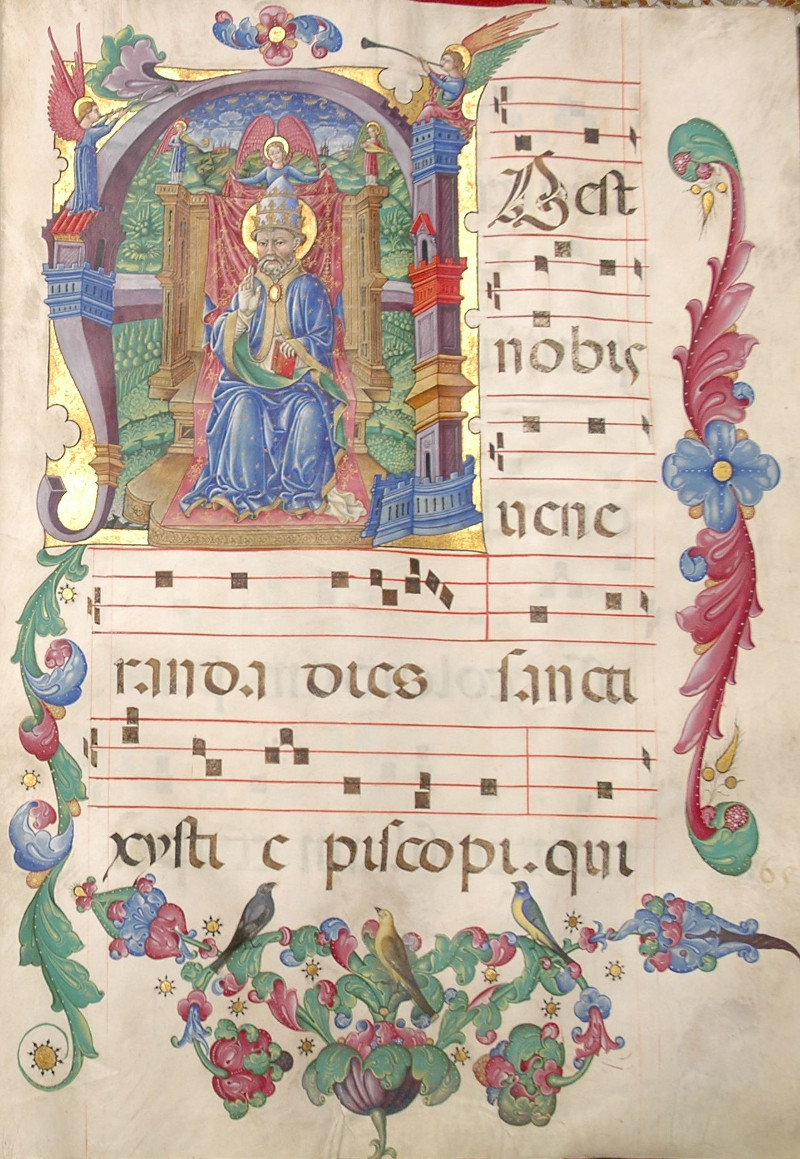 ADest
nobis
uene
randa dies sancti
xysti e piscopi. qui
65